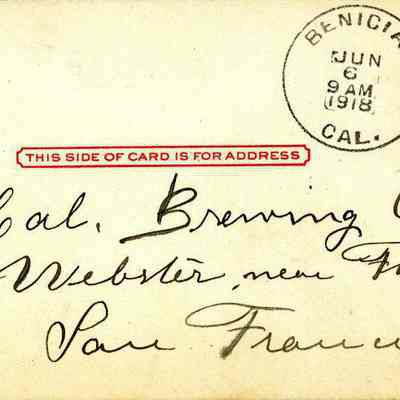 BENICIA
JUN
6
9 AM
1918
CAL.
THIS SIDE OF CARD IS FOR ADDRESS
Cal. Brewing
Webster, near
San Franc